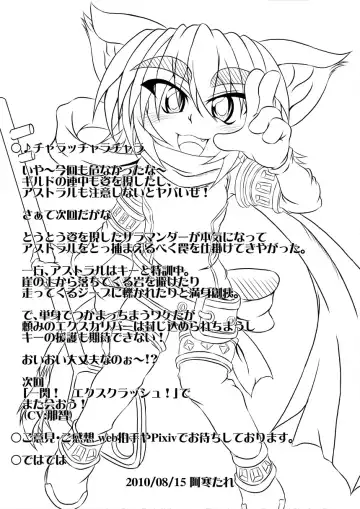 ○♪チャラッチャラチャラ
いや～今回も危なかったな～
ギルドの連中も姿を現したし、
アストラルも注意しないとヤバいぜ！
さぁて次回だがな
とうとう姿を現したサラマンダーが本気になって
アストラルをとっ捕まえるべく罠を仕掛けてきやがった。
一方、アストラルはキーと特訓中。
崖の上から落ちてくる岩を避けたり
走ってくるジープに轢かれたりと満身創痍。
で、単身でつかまっちまうワケだが
頼みのエクスカリバーは封じ込められちまうし
キーの援護も期待できない！
おいおい大丈夫なのぉ～!?
次回
「一閃！　エクスクラッシュ！」で
また会おう！
(CV:那智)
○ご意見・ご感想、web拍手やPixivでお待ちしております。
○ではでは
2010/08/15 阿寒たれ